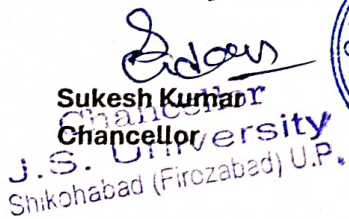 Sukesh Kumar
Chancellor
Chancellor
J.S. University
Shikohabad (Firozabad) U.P.